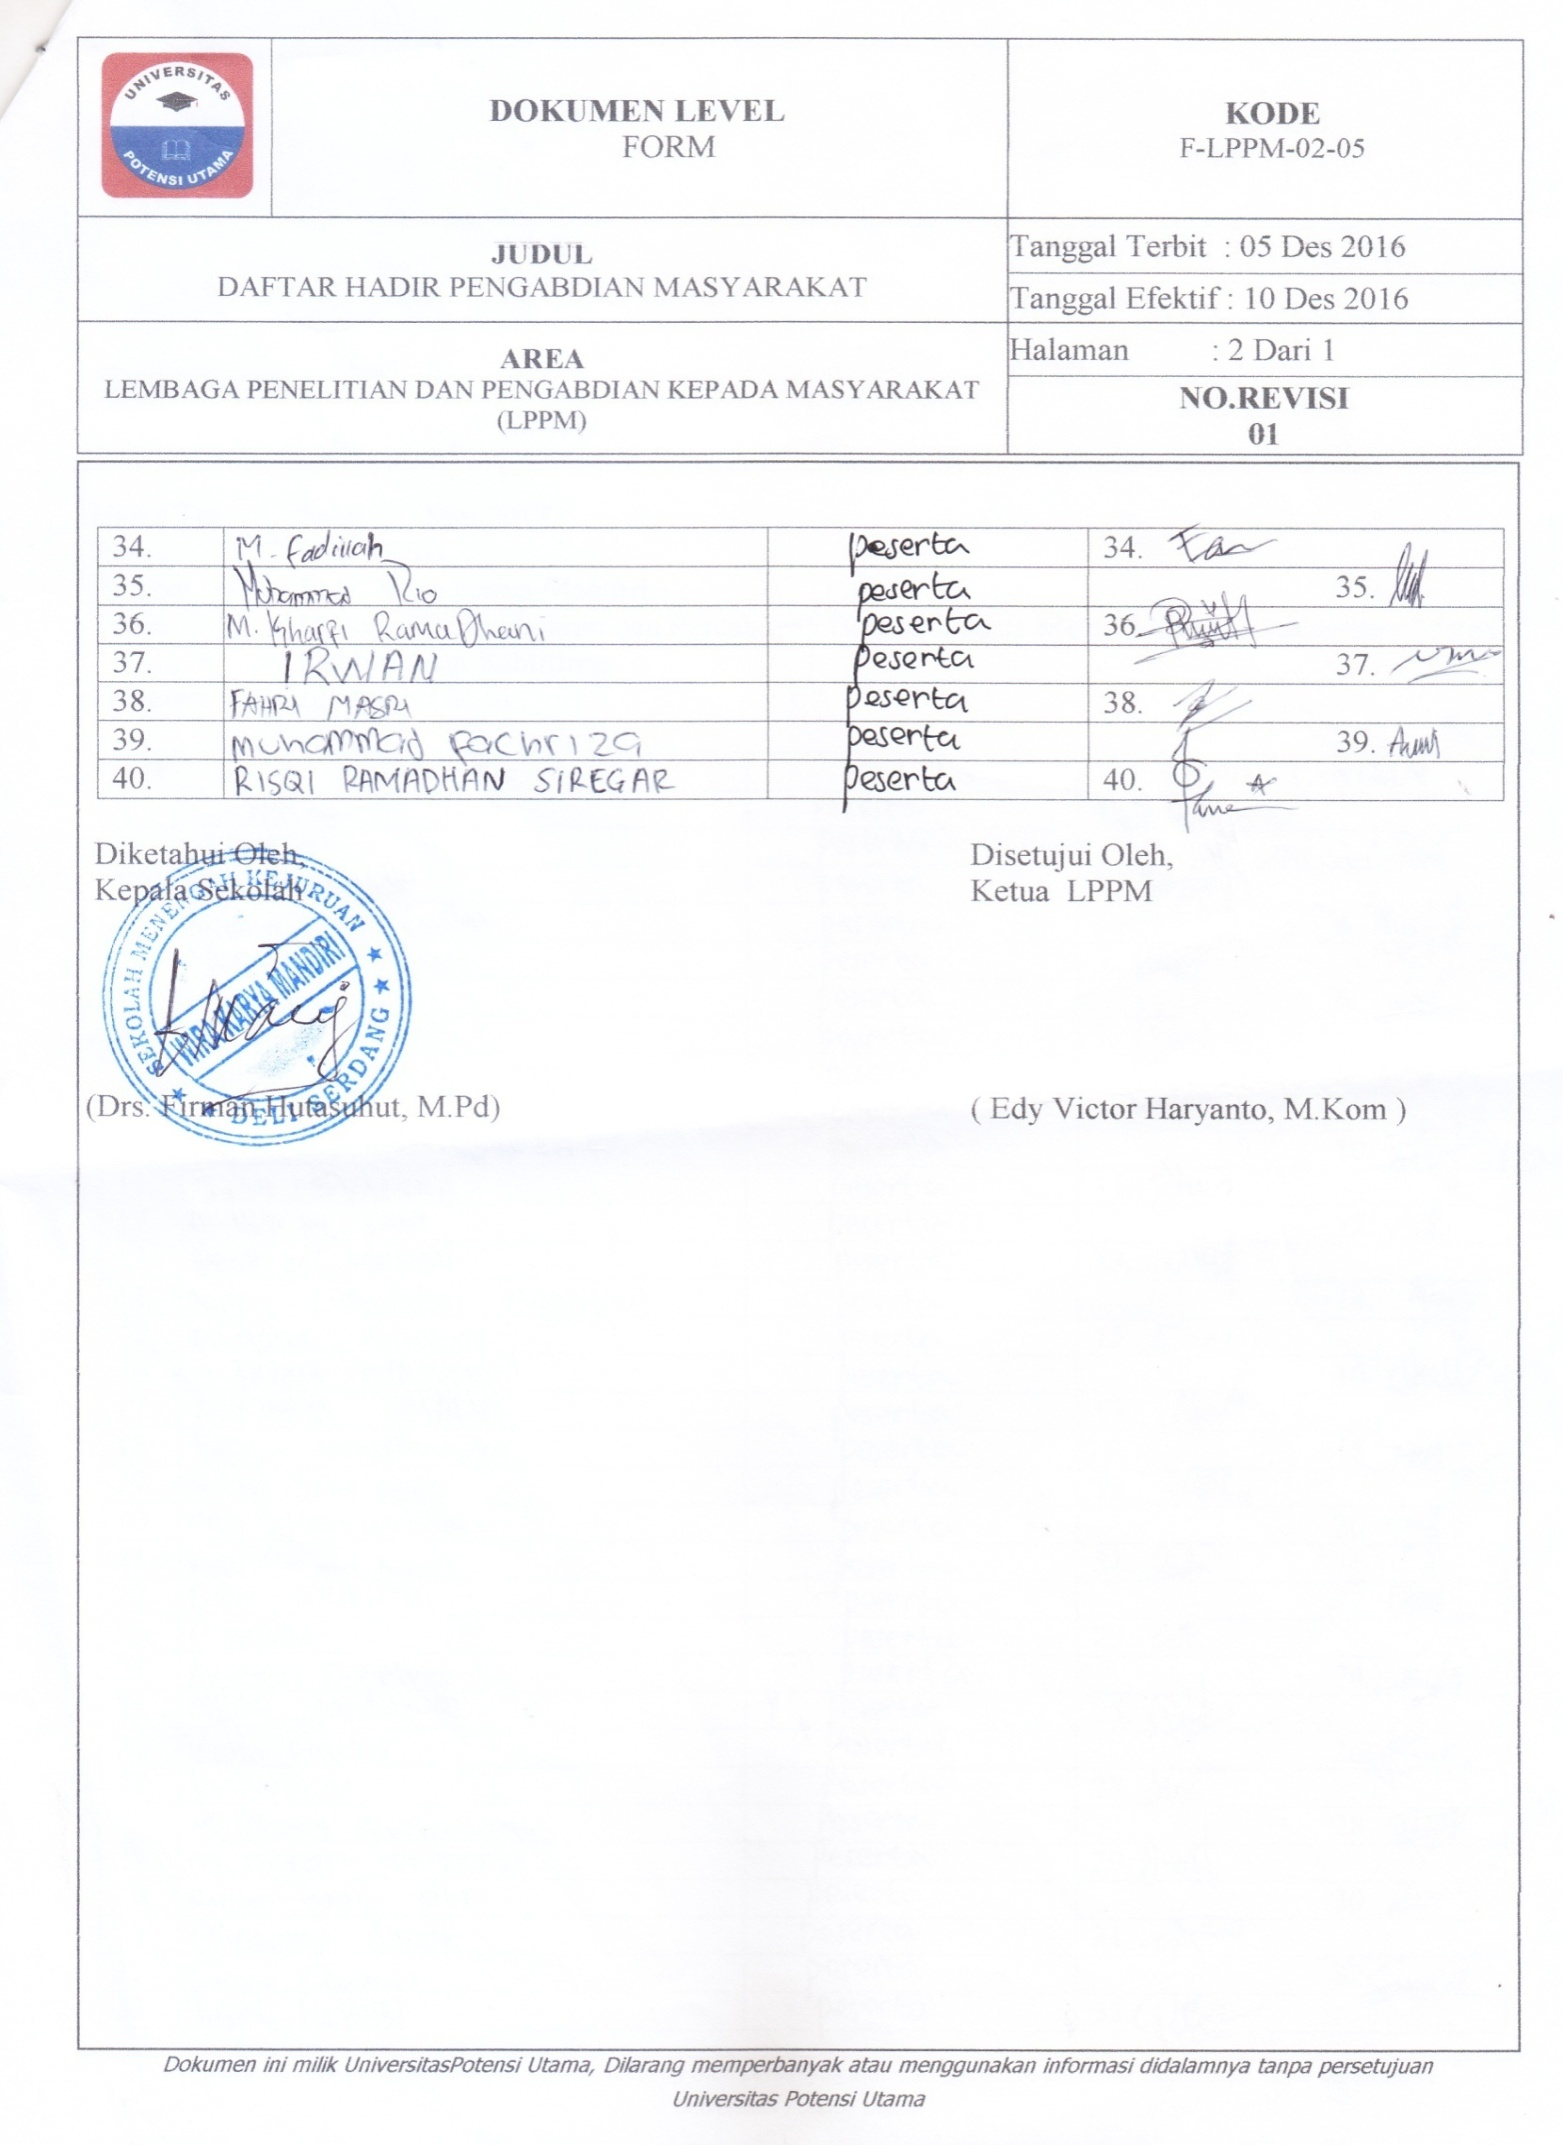 UNIVERSITAS
POTENSI UTAMA
DOKUMEN LEVEL
FORM
KODE
F-LPPM-02-05
JUDUL
DAFTAR HADIR PENGABDIAN MASYARAKAT
Tanggal Terbit : 05 Des 2016
Tanggal Efektif : 10 Des 2016
AREA
LEMBAGA PENELITIAN DAN PENGABDIAN KEPADA MASYARAKAT
(LPPM)
Halaman : 2 Dari 1
NO.REVISI
01
34. M. Fadillah peserta 34.
35. Muhammad Rio peserta 35.
36. M. RamaDhani peserta 36.
37. IRWAN peserta 37.
38. FAHRI MASRI peserta 38.
39. Muhammad Fachriza peserta 39.
40. RISQI RAMADHAN SIREGAR peserta 40.
Diketahui Oleh,
Kepala Sekolah
Disetujui Oleh,
Ketua LPPM
SEKOLAH MENENGAH KEJURUAN
WIRA KARYA MANDIRI
DELI SERDANG
(Drs. Firman Hutasuhut, M.Pd)
( Edy Victor Haryanto, M.Kom )
Dokumen ini milik UniversitasPotensi Utama, Dilarang memperbanyak atau menggunakan informasi didalamnya tanpa persetujuan
Universitas Potensi Utama